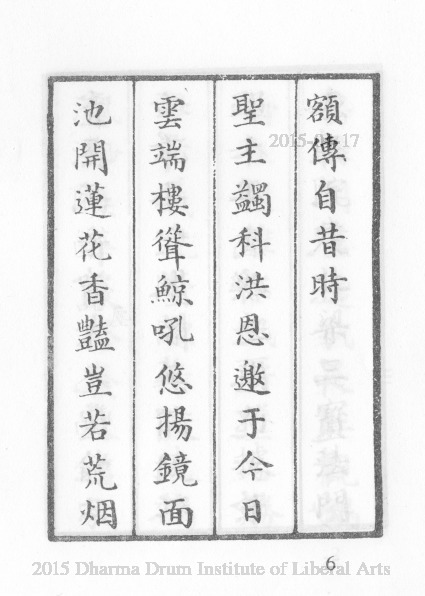 額傳自昔時
聖主蠲科洪恩邀于今日
雲端樓聳鯨吼悠揚鏡面
池開蓮花香豔豈若荒烟
6
2015 Dharma Drum Institute of Liberal Arts